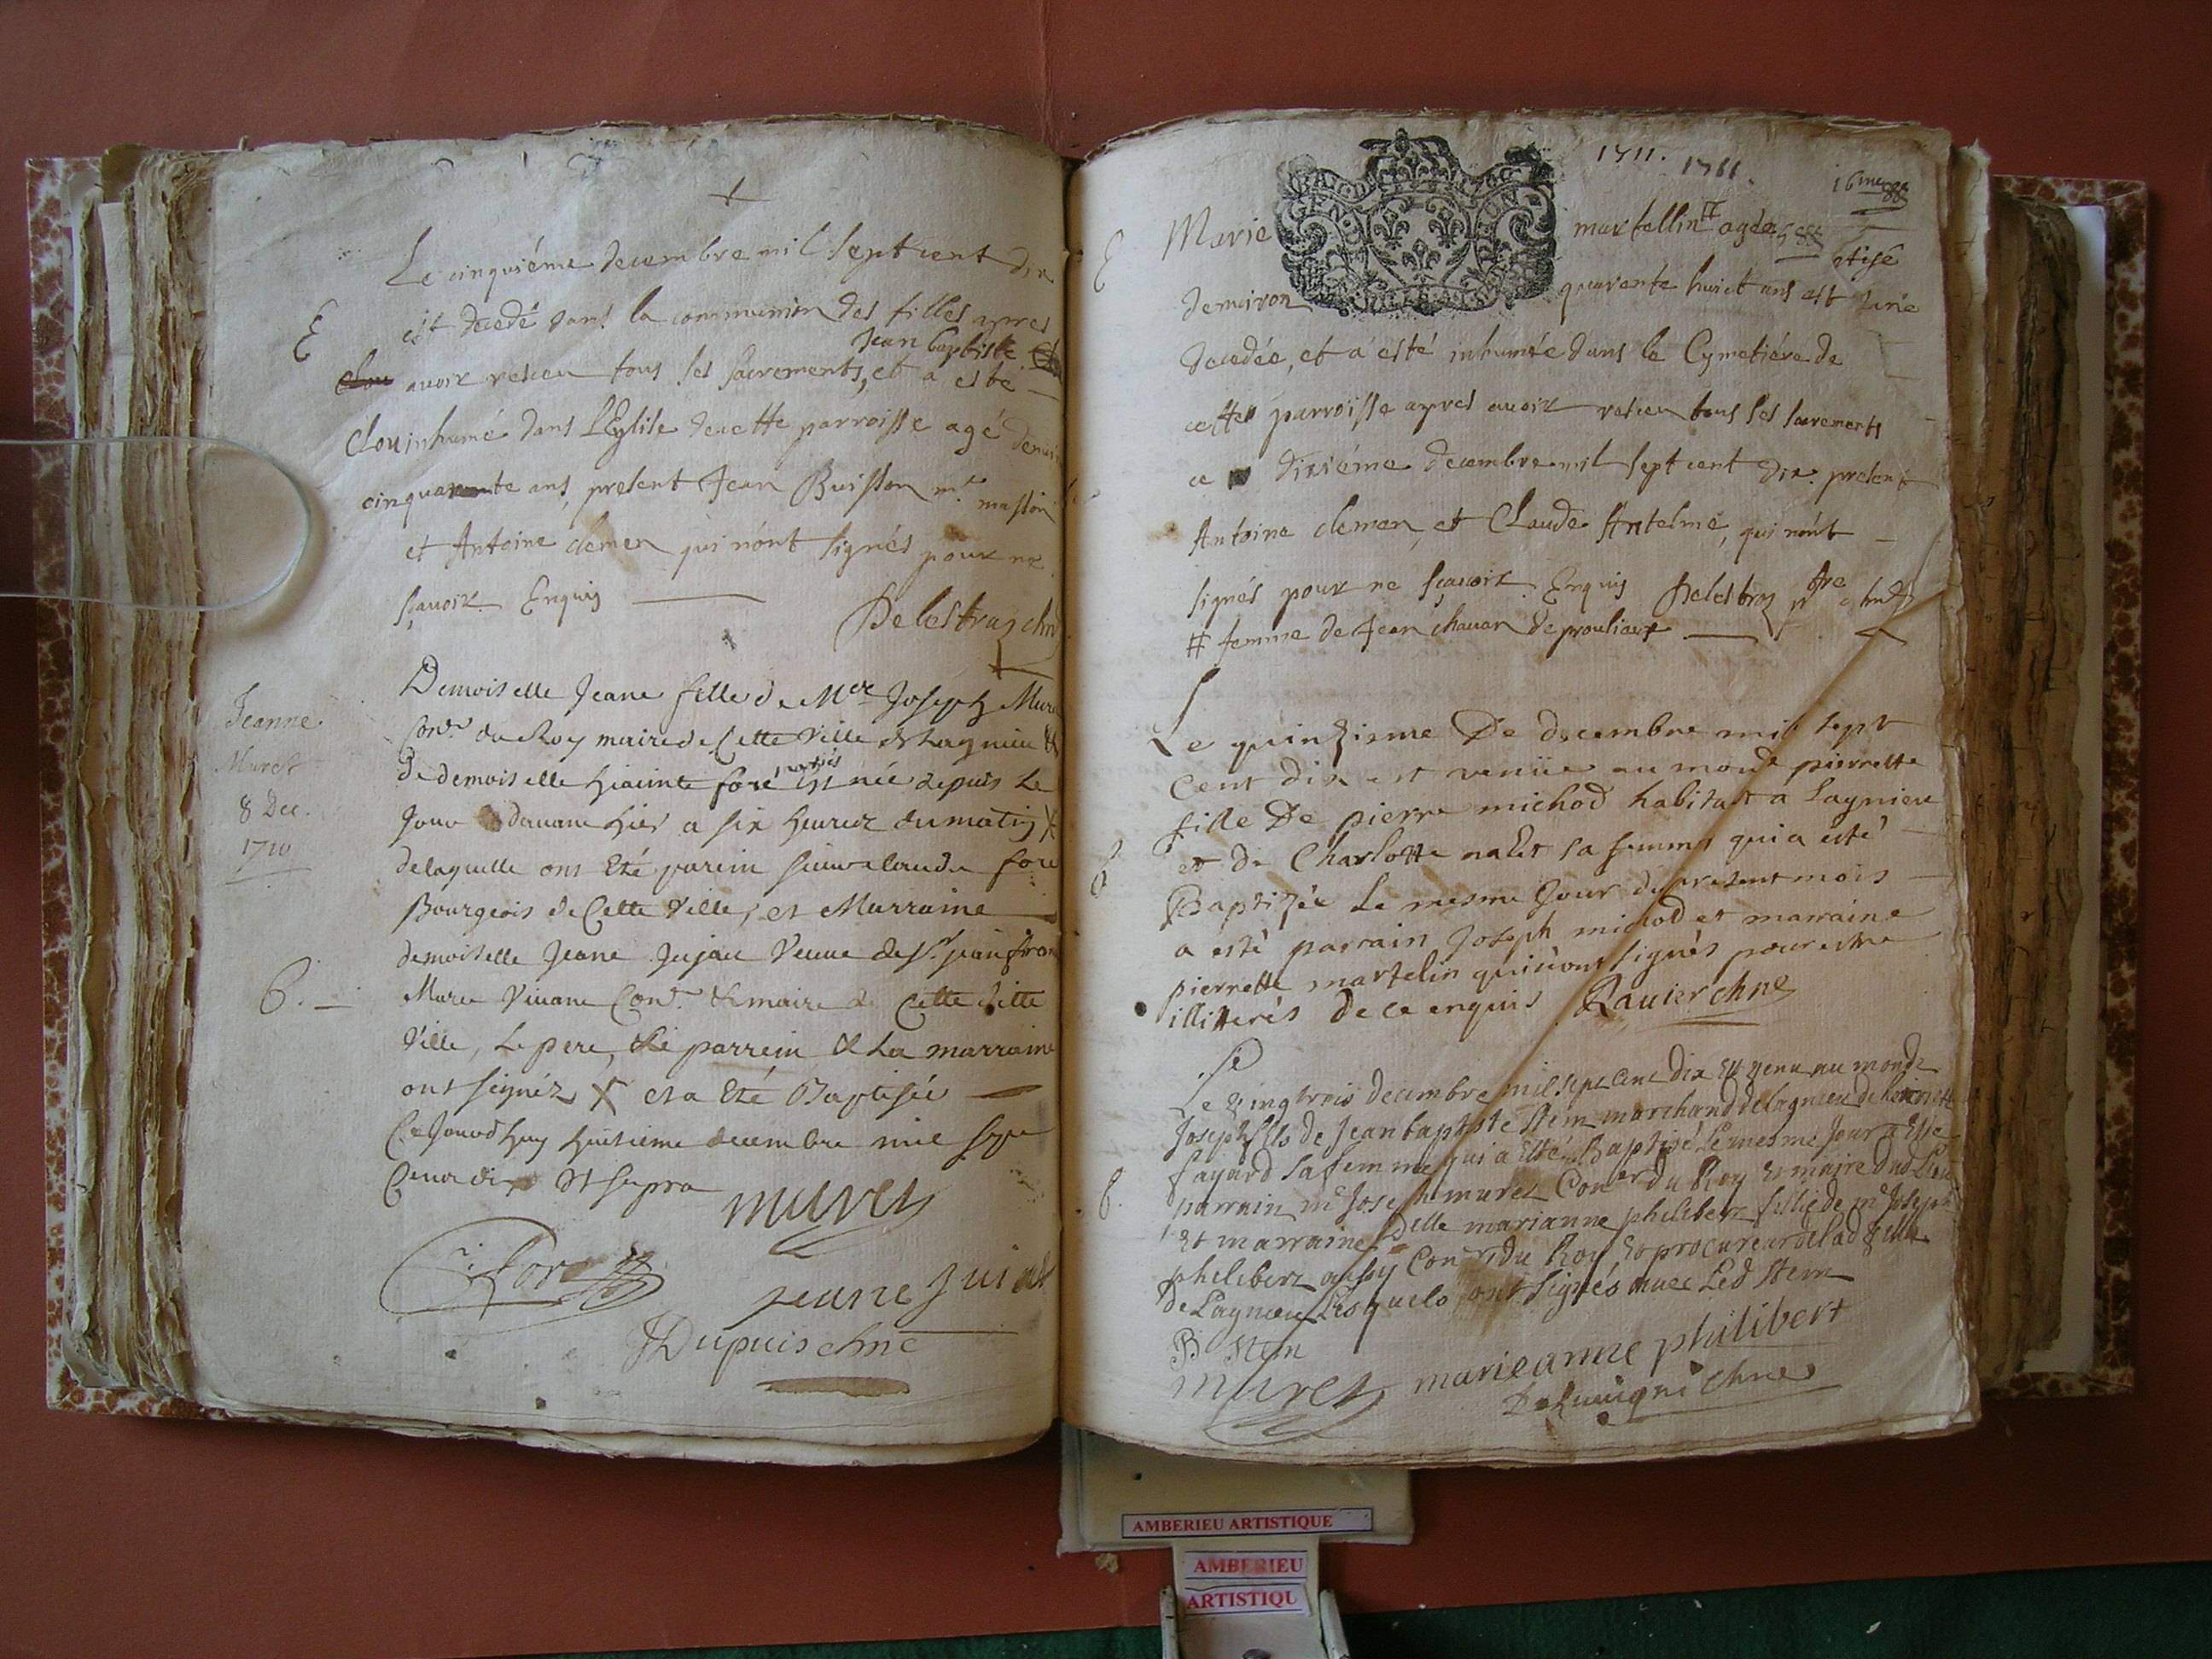 Le cinquiéme decembre mil sept cent dix
E est decedé dans la communion des filles apres
Jean baptiste
avoir receu tous ses sacrements, et a esté
Clou inhumé dans l'Eglise de cette parroisse agé denvi
cinquante ans, present Jean Buisson mr masson
et Antoine clemen qui nont signés pour ne
sçavoir Enquis
Delestraz chne
Demoiselle Jeane fille de Mre Joseph Mure
Conr du Roy maire de Cette Ville de Lagnieu &
de demoiselle hiacinte foré mariés est née depuis le
Jour davant hier a six heures du matin X
delaquelle ont Eté parein sieur claude foré
Bourgeois de Cette Ville, et Marraine
demoiselle Jeane Jujat veuve de Sr jean fran
Muret vivant Conr & maire de Cette ditte
Ville, Le pere, Le parrein & La marraine
ont signéz X et a Eté Baptisée
Ce Jourdhuy huitieme decembre mil sept
Cent dix Ut supra
muret
C foré
jeane jujat
Dupuis chne
Jeanne
Muret
8 Dec.
1710
B.
1711. 1711.
16me
88
GEN
Marie
martellin # agée
denviron
quarante huict ans est
decedée, et a esté inhumée dans le Cymetiére de
cette parroisse apres avoir receu tous ses sacrements
ce dixiéme decembre mil sept cent dix present
Antoine clemen, et Claude Antelme, qui nont
signés pour ne sçavoir Enquis Delestraz ptre chne
# femme de Jean chavan de proulieu
Le quinzieme De decembre mil sept
Cent dix est venüe au monde pierrette
fille De pierre michod habitant a Lagnieu
et de Charlotte nalet sa femme qui a esté
Baptizée Le mesme Jour du present mois
a esté parrain Joseph michod et marraine
pierrette martelin qui nont signés pour estre
illitterés de ce enquis Ravier chne
Le vingtrois decembre mil sept cent dix Est venu au monde
Joseph fils de Jean baptiste Stem marchand de lagnieu de
fayard sa femme qui a Esté Baptisé Le mesme Jour a Esté
parrain mr Joseph muret Coner du Roy Et maire dud Lieu
Et marraine Delle marianne philibert fille de mr Joseph
philibert aussy Coner du Roy Et procureur de lad ville
de Lagnieu Lesquels ont signés avec Led Stem
B Stem
muret marie anne philibert
chne
AMBERIEU ARTISTIQUE
AMBERIEU
ARTISTIQU